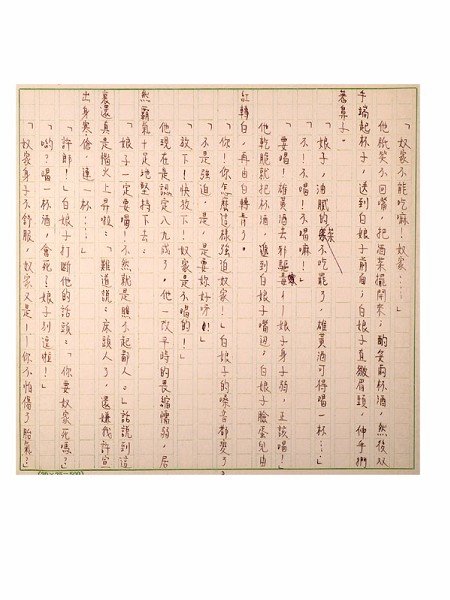 「奴家不能吃嘛,奴家……」
他祇笑不回嘴,把酒菜擺開來;酌矣兩杯酒,然後双
手端起杯子,送到白娘子前面;白娘子直皺眉頭,伸手捫
著鼻子。
「娘子,油膩的菜不吃罷了,雄黃酒可得喝一杯……」
「不!不喝!不喝嘛!」
「要喝!雄黃酒去邪驅毒——娘子身子弱,正該喝!」
他乾脆就把杯酒進到白娘子嘴邊;白娘子臉蛋兒由
紅轉白,再由白轉青了。
「你!你怎麼這樣強迫奴家!」白娘子的嗓音都變了
「不是強迫,是,是要妳好呀!」
「放下!快放下!奴家是不喝的!」
他現在是認定八九成了,他一改平時的畏縮懦弱,居
然霸氣十足地堅持下去:
「娘子一定要喝!不然就是瞧不起鄙人。」話説到這
裏還真是惱火上昇哦:「難道説:床頭人了,還嫌我許宣
出身寒傖,連一杯……」
「許郎!」白娘子打斷他的話頭:「你要奴家死嗎?」
「喲?喝一杯酒,會死?娘子別逗啦!」
「奴家身子不舒服,奴家又是!——你不怕傷了胎氣?」
(20×25=500)